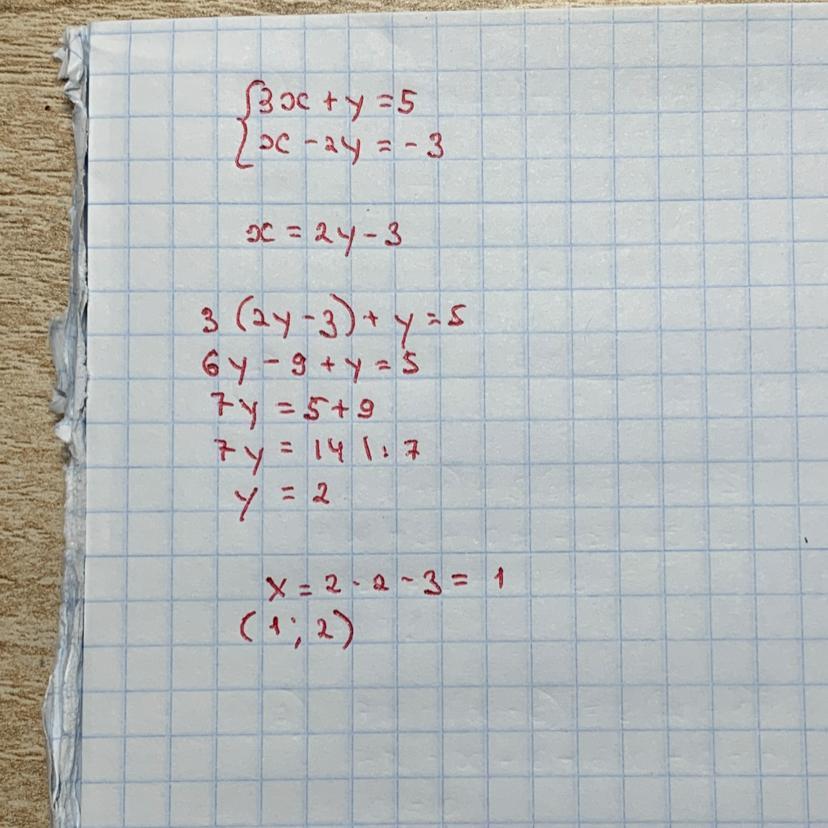 {3x + y = 5
x - 2y = - 3
x = 2y - 3
3 (2y - 3) + y = 5
6y - 9 + y = 5
7y = 5 + 9
7y = 14 | : 7
y = 2
x = 2 · 2 - 3 = 1
(1; 2)